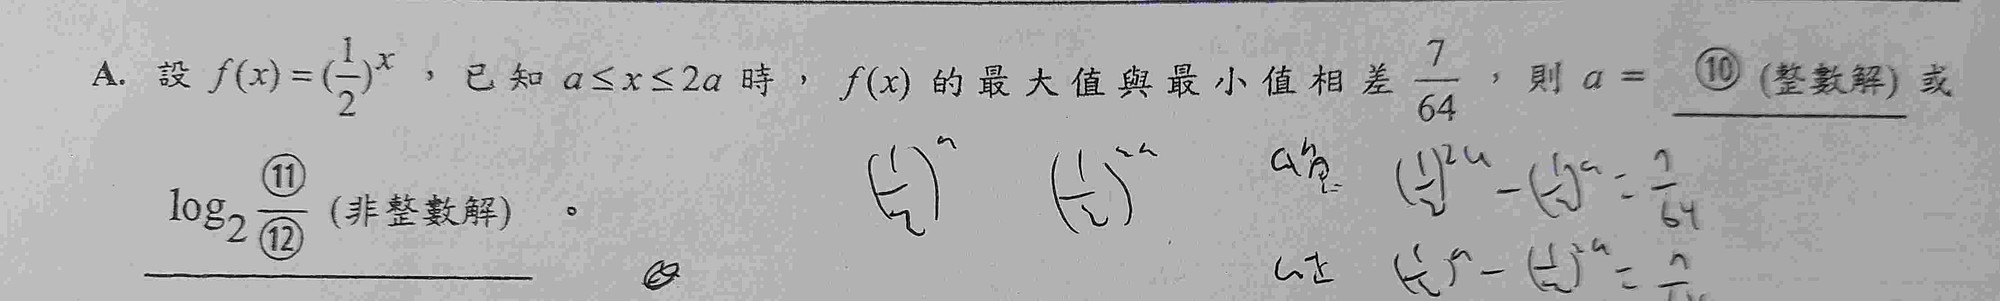 A. 設 f(x)=(1/2)^x ，已知 a≤x≤2a 時，f(x) 的最大值與最小值相差 7/64 ，則 a = ⑩ (整數解) 或
log₂ ⑪/⑫ (非整數解) 。
(1/2)^a (1/2)^2a a負 (1/2)^2a − (1/2)^a = 7/64
(1/2)^a − (1/2)^2a =